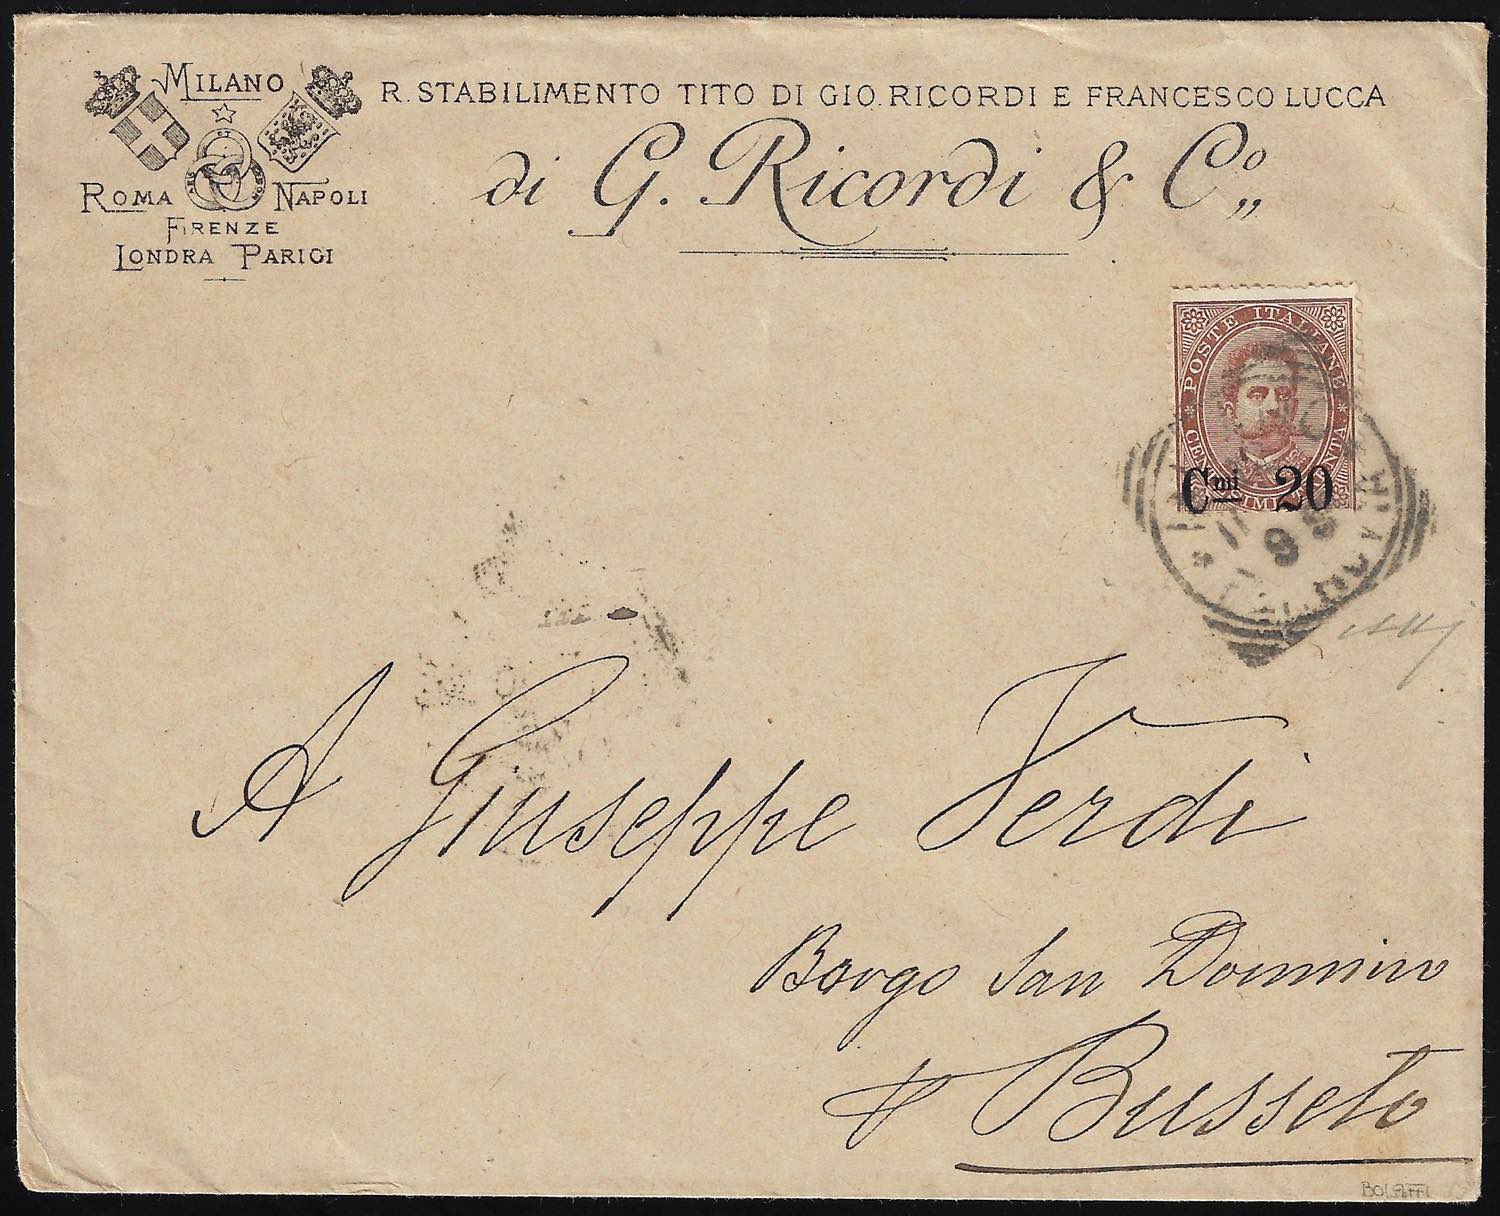 MILANO
ROMA NAPOLI
FIRENZE
LONDRA PARIGI
R. STABILIMENTO TITO DI GIO. RICORDI E FRANCESCO LUCCA
di G. Ricordi & Co„
* POSTE ITALIANE *
Cmi 20
A Giuseppe Verdi
Borgo San Donnino
p Busseto